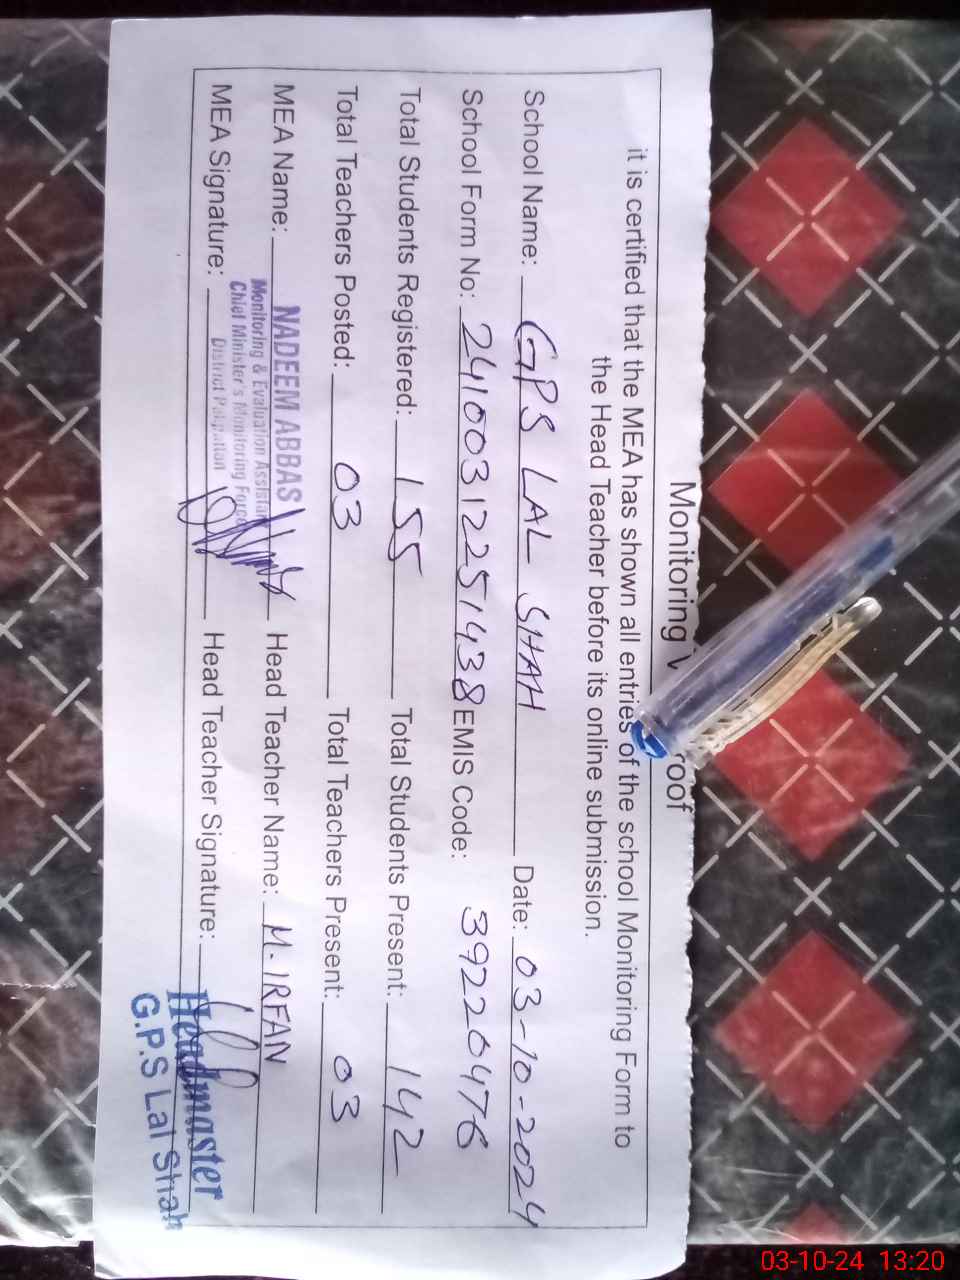 Monitoring V roof
it is certified that the MEA has shown all entries of the school Monitoring Form to
the Head Teacher before its online submission.
School Name: GPS LAL SHAH Date: 03-10-2024
School Form No: 24100312251438 EMIS Code: 39220476
Total Students Registered: 155 Total Students Present: 142
Total Teachers Posted: 03 Total Teachers Present: 03
MEA Name: NADEEM ABBAS Head Teacher Name: M. IRFAN
Monitoring & Evaluation Assistant
Chief Minister's Monitoring Force
District Pakpattan
MEA Signature: Head Teacher Signature:
Headmaster
G.P.S Lal Shah
03-10-24 13:20